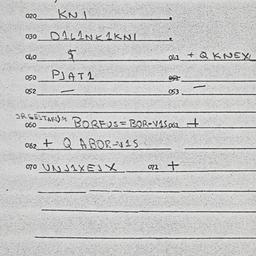 020 KNI
030 D1L1NK1KNI
040 $ 041 + Q KNEX
050 PJAT1 051
052 — 053 —
060 BORFJS=BOR-V1S 061 +
062 + Q ABOR-V1S
070 VNJ1XEJX 071 +